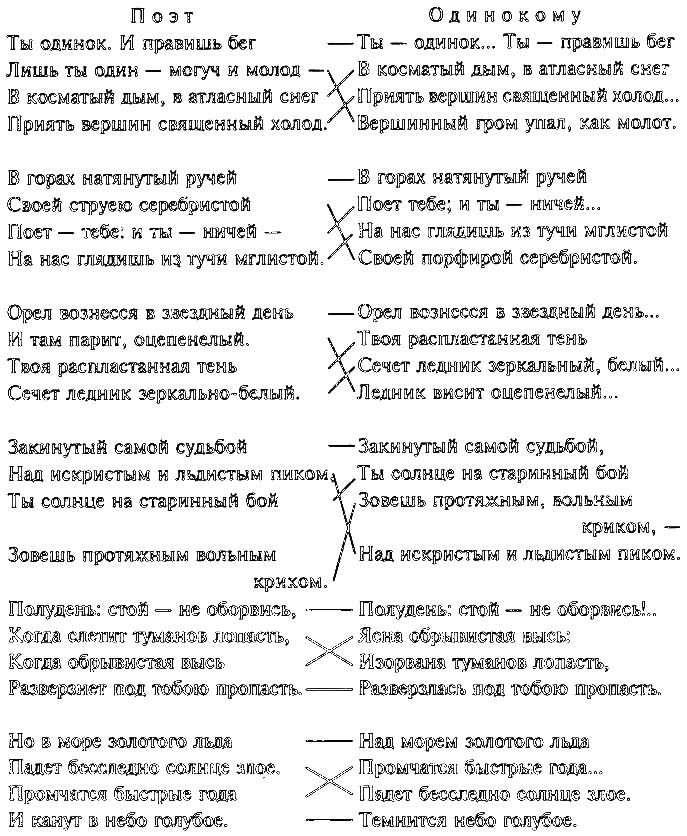 Поэт
Ты одинок. И правишь бег
Лишь ты один — могуч и молод —
В косматый дым, в атласный снег
Приять вершин священный холод.
В горах натянутый ручей
Своей струею серебристой
Поет — тебе: и ты — ничей —
На нас глядишь из тучи мглистой.
Орел вознесся в звездный день
И там парит, оцепенелый.
Твоя распластанная тень
Сечет ледник зеркально-белый.
Закинутый самой судьбой
Над искристым и льдистым пиком,
Ты солнце на старинный бой
Зовешь протяжным вольным
криком.
Полудень: стой — не оборвись,
Когда слетит туманов лопасть,
Когда обрывистая высь
Разверзнет под тобою пропасть.
Но в море золотого льда
Падет бесследно солнце злое.
Промчатся быстрые года
И канут в небо голубое.
Одинокому
Ты — одинок... Ты — правишь бег
В косматый дым, в атласный снег
Приять вершин священный холод...
Вершинный гром упал, как молот.
В горах натянутый ручей
Поет тебе; и ты — ничей...
На нас глядишь из тучи мглистой
Своей порфирой серебристой.
Орел вознесся в звездный день...
Твоя распластанная тень
Сечет ледник зеркальный, белый...
Ледник висит оцепенелый...
Закинутый самой судьбой,
Ты солнце на старинный бой
Зовешь протяжным, вольным
криком, —
Над искристым и льдистым пиком.
Полудень: стой — не оборвись!..
Ясна обрывистая высь:
Изорвана туманов лопасть,
Разверзлась под тобою пропасть.
Над морем золотого льда
Промчатся быстрые года...
Падет бесследно солнце злое.
Темнится небо голубое.